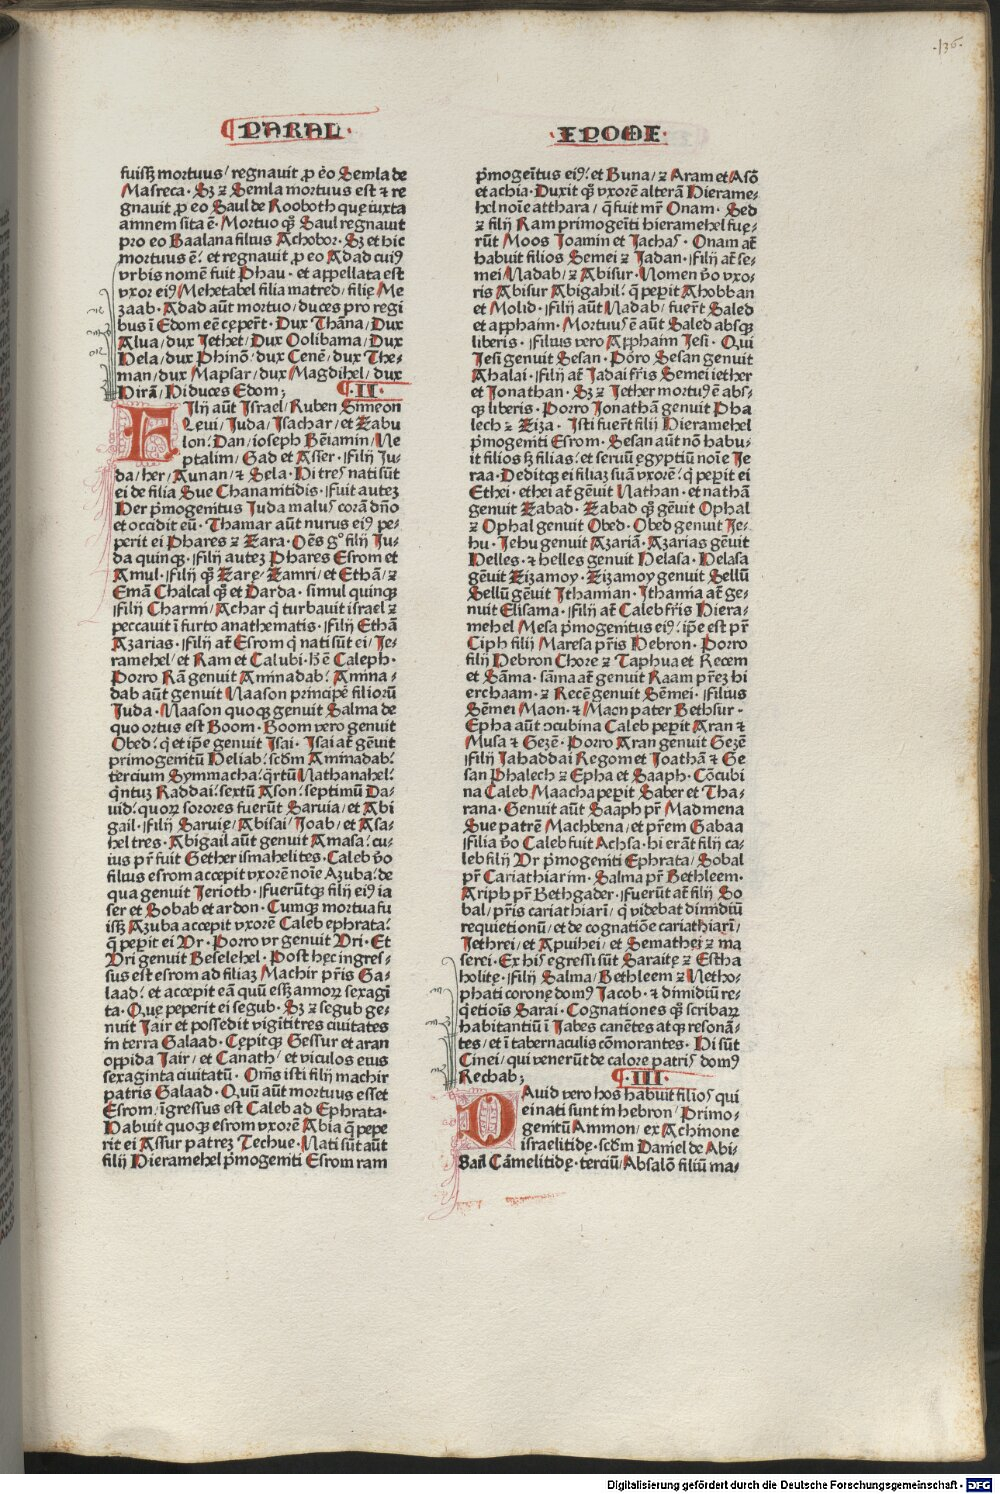 .136.
PARAL·
·EPOME·
fuisꝫ mortuus/ regnauit ꝓ eo Semla de
Masreca· Sꝫ ⁊ Semla mortuus est ⁊ re
gnauit ꝓ eo Saul de Rooboth quę iuxta
amnem sita ē· Mortuo qꝫ Saul regnauit
pro eo Baalana filius Achobor· Sꝫ et hic
mortuus ē? et regnauit ꝓ eo Adad cuiꝰ
vrbis nomē fuit Phau· et appellata est
vxor eiꝰ Mehetabel filia matred/ filię Me
zaab· Adad aūt mortuo/ duces pro regi
bus ī Edom eē cępert̄· Dux Thāna/ Dux
Alua/ dux Jethet/ Dux Oolibama/ Dux
Hela/ dux Phinō· dux Cenē/ dux The⸗
man/ dux Mapsar/ dux Magdihel/ dux
Hirā/ Hi duces Edom; ¶·II·
Filij aūt Israel/ Ruben Simeon
Leui/ Juda/ Isachar/ et Zabu
lon? Dan/ ioseph Bēiamin/ Ne
ptalim/ Gad et Asser· Filij Ju⸗
da/ her/ Aunan/ ⁊ Sela· Hi tres nati sūt
ei de filia Sue Chananitidis· Fuit auteꝫ
Her p̄mogenitus Juda malus corā dn̄o
et occidit eū· Thamar aūt nurus eiꝰ pe⸗
perit ei Phares ⁊ Zara· Oēs gͦ filij Ju⸗
da quinqꝫ· Filij auteꝫ Phares Esrom et
Amul· Filij qꝫ Zarę/ Zamri/ et Ethā/ ⁊
Emā Chalcal qꝫ et Darda· simul quinqꝫ
Filij Charmi/ Achar q̇ turbauit israel ⁊
peccauit ī furto anathematis· Filij Ethā
Azarias· Filij at̄ Esrom q̇ nati sūt ei/ Je⸗
ramehel/ et Ram et Calubi· h̄ ē Caleph·
Porro Rā genuit Aminadab? Amina⸗
dab aūt genuit Naason principē filiorū
Juda· Naason quoqꝫ genuit Salma de
quo ortus est Boom· Boom vero genuit
Obed? q̇ et ip̄e genuit Isai· Isai at̄ gēuit
primogenitū Heliab? scd̄m Aminadab?
tercium Symmacha? q̇rtū Nathanahel?
q̇ntuꝫ Raddai? sextū Ason? septimū Da⸗
uid? quorꝝ sorores fuerūt Saruia/ et Abi
gail· Filij Saruię/ Abisai/ Joab/ et Asa⸗
hel tres· Abigail aūt genuit Amasa? cu⸗
ius pr̄ fuit Gether ismahelites· Caleb v̄o
filius esrom accepit vxorē noīe Azuba? de
qua genuit Jerioth· Fuerūtqꝫ filij eiꝰ ia
ser et Sobab et ardon· Cumqꝫ mortua fu
isꝫ Azuba accepit vxorē Caleb ephrata?
q̄ peꝑit ei Vr· Porro vr genuit Vri· Et
Vri genuit Beselehel· Post hęc ingres⸗
sus est esrom ad filiaꝫ Machir pr̄is Ga⸗
laad? et accepit eā quū esꝫ annorꝝ sexagi
ta· Quę peperit ei segub· Sꝫ ⁊ segub ge⸗
nuit Jair et possedit vigīti tres ciuitates
in terra Galaad· Cępitqꝫ Gessur et aran
oppida Jair/ et Canath/ et viculos eius
sexaginta ciuitatū· Om̄s isti filij machir
patris Galaad· Quū aūt mortuus esset
Esrom/ īgressus est Caleb ad Ephrata·
Habuit quoqꝫ esrom vxorē Abia q̄ pepe
rit ei Assur patreꝫ Techue· Nati sūt aūt
filij Hieramehel p̄mogeniti Esrom ram
p̄mogeītus eiꝰ? et Buna/ ⁊ Aram et Asō
et achia· Duxit qꝫ vxorē alterā Hierame⸗
hel noīe atthara/ q̄ fuit mr̄ Onam· Sed
⁊ filij Ram primogeīti hieramehel fuę⸗
rūt Moos Joamin et Jachas· Onam at̄
habuit filios Semei ⁊ Jadan· Filij at̄ se⸗
mei Nadab/ ⁊ Abisur· Nomen v̄o vxo⸗
ris Abisur Abigahil? q̄ peꝑit Ahobban
et Molid· Filij aūt Nadab/ fuer̄t Saled
et apphaim· Mortuus ē aūt Saled absqꝫ
liberis· Filius vero Apphaim Jesi· Qui
Jesi genuit Sesan· Poro Sesan genuit
Ahalai· Filij at̄ Jadai fr̄is Semei iether
et Jonathan· Sꝫ ⁊ Jether mortuꝰ ē abs⸗
qꝫ liberis· Porro Jonathā genuit Pha
lech ⁊ Ziza· Isti fuer̄t filij Hieramehel
p̄mogeniti Esrom· Sesan aūt nō habu⸗
it filios sꝫ filias? et seruū ęgyptiū noīe Je
raa· Deditqꝫ ei filiaꝫ suā vxorē? q̄ peꝑit ei
Ethei· ethei at̄ gēuit Nathan· et nathā
genuit Zabad· Zabad qꝫ gēuit Ophal
⁊ Ophal genuit Obed· Obed genuit Je⸗
hu· Jehu genuit Azariā· Azarias gēuit
Helles· ⁊ helles genuit Helasa· Helasa
gēuit Zizamoy· Zizamoy genuit Sellū
Sellū gēuit Ithamian· Ithamia at̄ ge⸗
nuit Elisama· Filij at̄ Caleb fr̄is Hiera⸗
mehel Mesa p̄mogenitus eiꝰ? ip̄e est pr̄
Ciph filij Maresa pr̄is Hebron· Porro
filij Hebron Chore ⁊ Taphua et Recem
et Sāma· sāma at̄ genuit Raam pr̄eꝫ hi
erchaam· ⁊ Recē genuit Sēmei· Filius
Sēmei Maon· ⁊ Maon pater Bethsur·
Epha aūt ↄcubina Caleb peꝑit Aran ⁊
Musa ⁊ Gezē· Porro Aran genuit Gezē
Filij Jahaddai Regom et Joathā ⁊ Ge
san Phalech ⁊ Epha et Saaph· Cōcubi
na Caleb Maacha peꝑit Saber et Tha⸗
rana· Genuit aūt Saaph pr̄ Madmena
Sue patrē Machbena/ et pr̄em Gabaa
Filia v̄o Caleb fuit Achsa· hi erāt filij ca⸗
leb filij Vr p̄mogeniti Ephrata/ Sobal
pr̄ Cariathiarim· Salma pr̄ Bethleem·
Ariph pr̄ Bethgader· Fuerūt at̄ filij So
bal/ pr̄is cariathiari/ q̇ videbat dimidiū
requietionū/ et de cognatiōe cariathiari/
Jethrei/ et Apuihei/ et Semathei ⁊ ma
serei· Ex his egressi sūt Saraitę ⁊ Estha
holitę· Filij Salma/ Bethleem ⁊ Netho⸗
phati coronę domꝰ Jacob· ⁊ dimidiū re⸗
q̇etiōis Sarai· Cognationes qꝫ scribarꝝ
habitantiū ī Jabes canētes atqꝫ resonā⸗
tes/ et ī tabernaculis cōmorantes· Hi sūt
Cinei/ qui venerūt de calore patris domꝰ
Rechab; ¶·III·
David vero hos habuit filios qui
ei nati sunt in hebron/ Primo⸗
genitū Ammon/ ex Achinone
israelitidę· scd̄m Daniel de Abi⸗
Gail Cāmelitidę· terciū/ Absalō filiū ma⸗
Digitalisierung gefördert durch die Deutsche Forschungsgemeinschaft - DFG